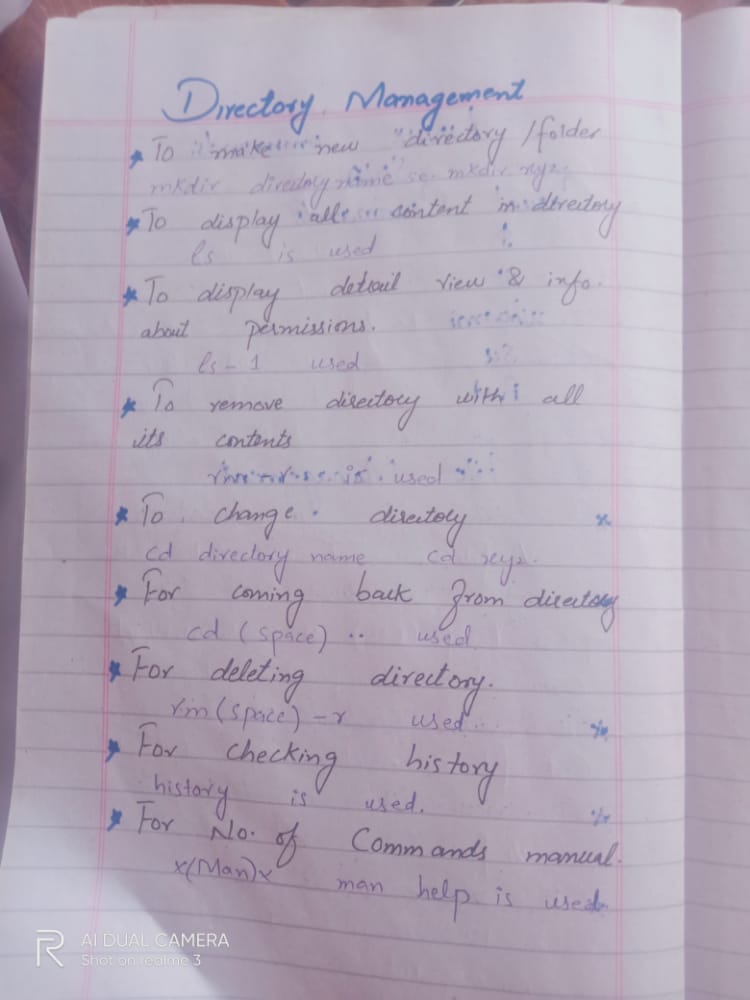 Directory Management
* To make new directory / folder
mkdir directory name mkdir xyz
* To display all content in directory
ls is used
* To display detail view & info.
about permissions.
ls - 1 used
* To remove directory with all
its contents
is used
* To change directory
cd directory name cd xyz.
* For coming back from directory
cd (space) .. used
* For deleting directory.
rm (space) - r used
* For checking history
history is used.
* For No. of Commands manual.
x(Man)x man help is used
R AI DUAL CAMERA
Shot on realme 3